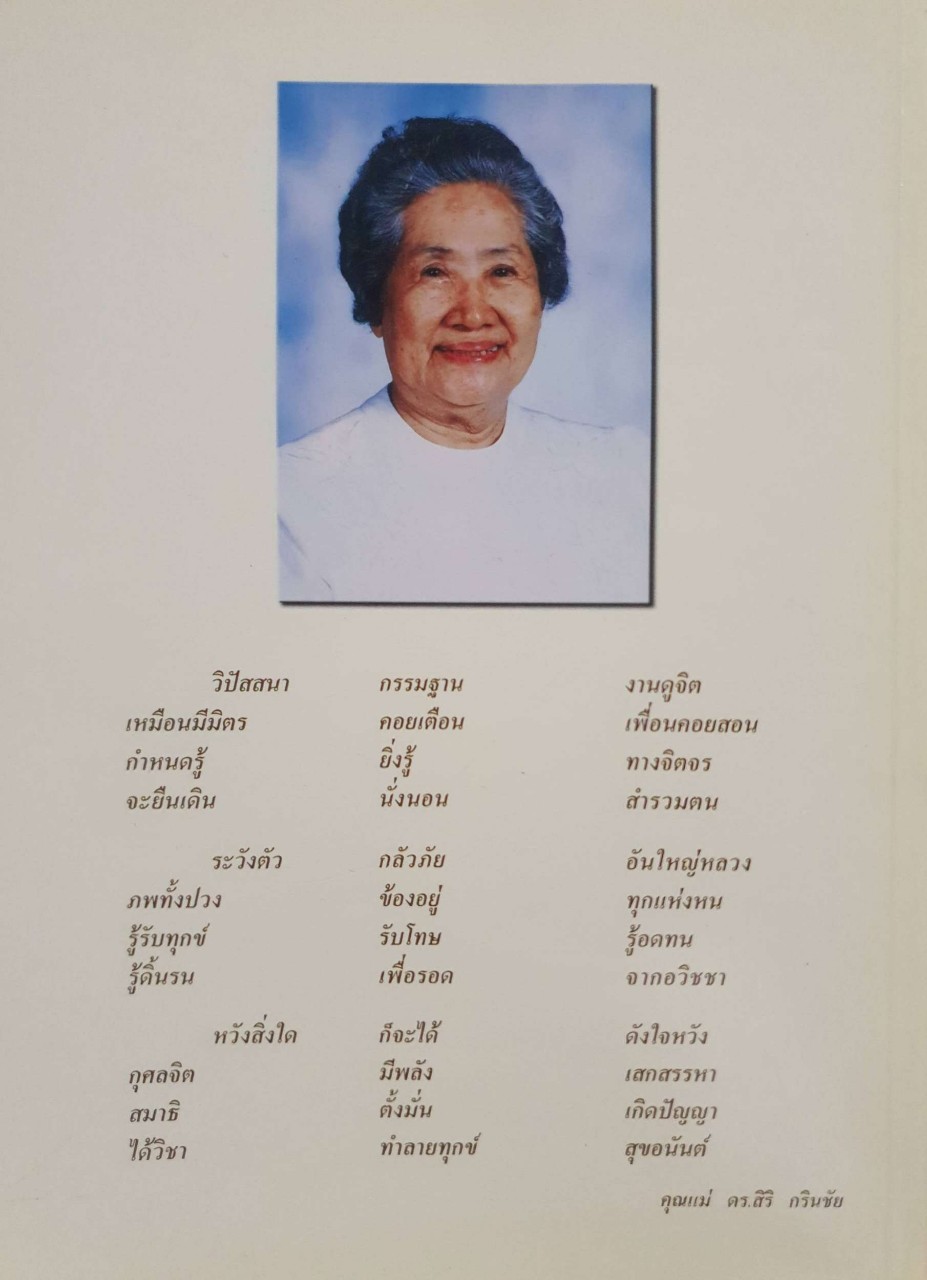 วิปัสสนา กรรมฐาน งานดูจิต
เหมือนมีมิตร คอยเตือน เพื่อนคอยสอน
กำหนดรู้ ยิ่งรู้ ทางจิตจร
จะยืนเดิน นั่งนอน สำรวมตน
ระวังตัว กลัวภัย อันใหญ่หลวง
ภพทั้งปวง ข้องอยู่ ทุกแห่งหน
รู้รับทุกข์ รับโทษ รู้อดทน
รู้ดิ้นรน เพื่อรอด จากอวิชชา
หวังสิ่งใด ก็จะได้ ดังใจหวัง
กุศลจิต มีพลัง เสกสรรหา
สมาธิ ตั้งมั่น เกิดปัญญา
ได้วิชา ทำลายทุกข์ สุขอนันต์
คุณแม่ ดร.สิริ กรินชัย